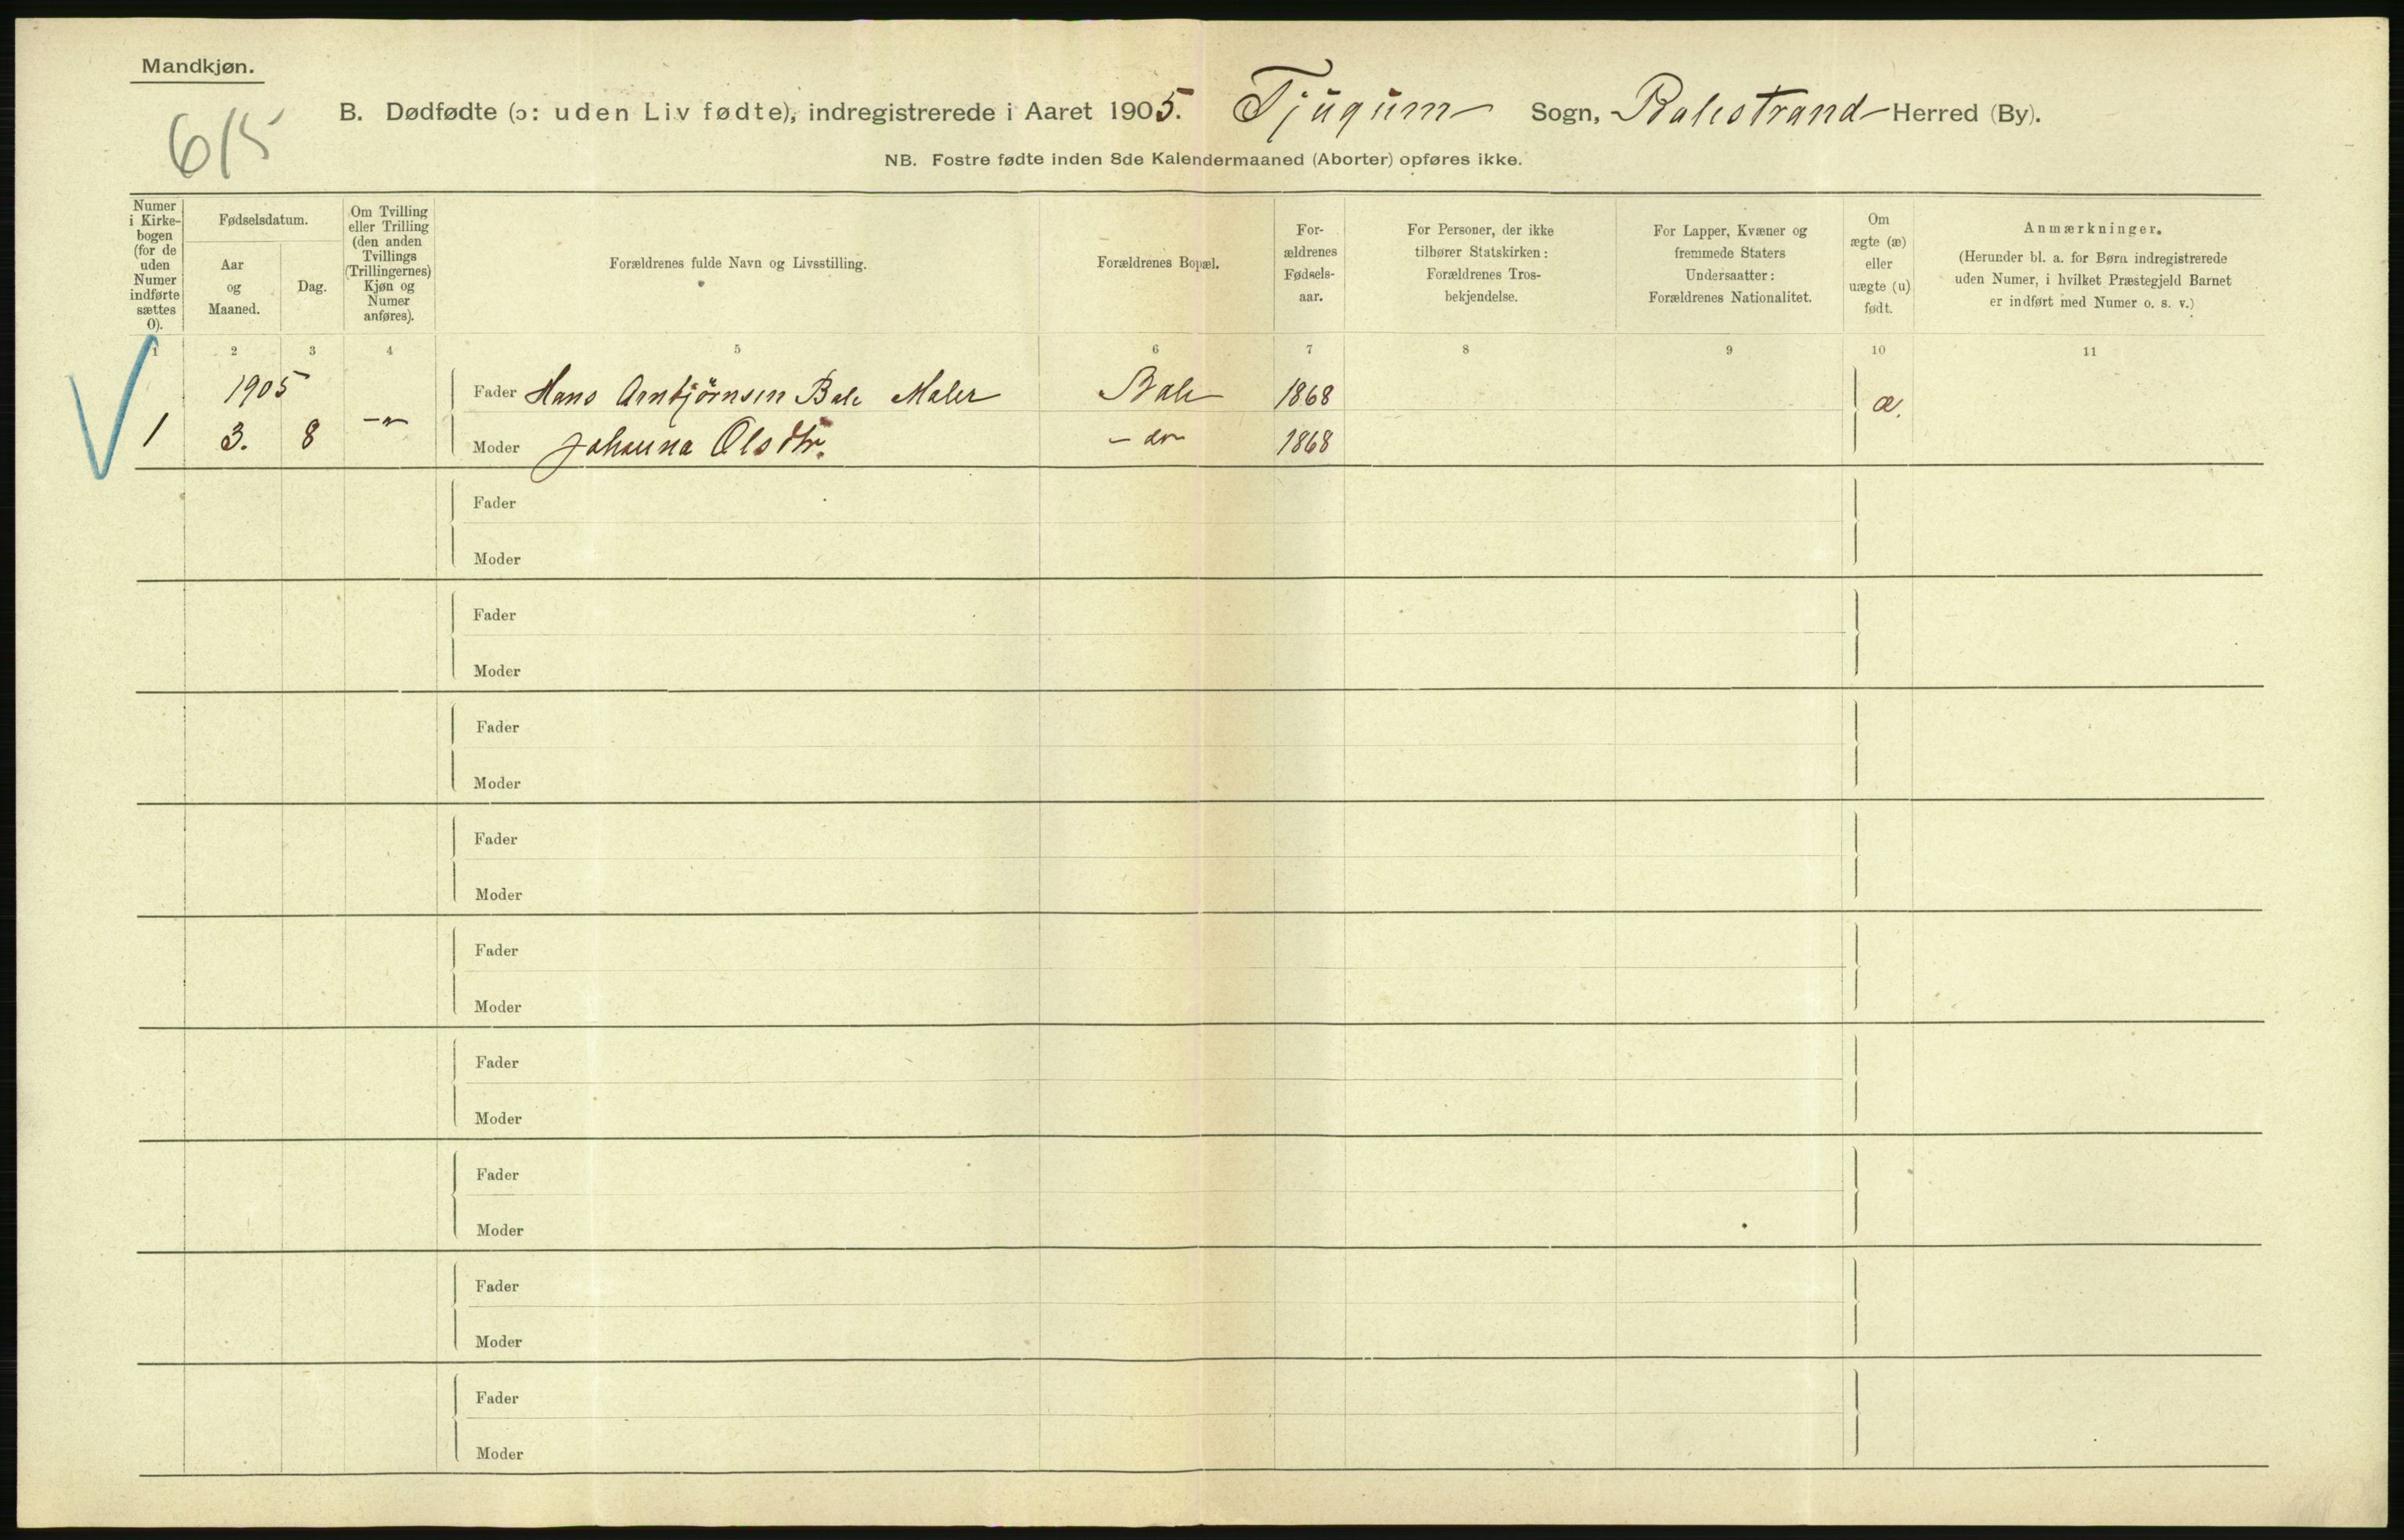 Mandkjøn.
615
B. Dødfødte (ɔ: uden Liv fødte), indregistrerede i Aaret 1905. Tjugum Sogn, Balestrand Herred (By).
NB. Fostre fødte inden 8de Kalendermaaned (Aborter) opføres ikke.
Numer i Kirke-bogen (for de uden Numer indførte sættes 0).
Fødselsdatum.
Aar og Maaned.
Dag.
Om Tvilling eller Trilling (den anden Tvillings (Trillingernes) Kjøn og Numer anføres).
Forældrenes fulde Navn og Livsstilling.
Forældrenes Bopæl.
For-ældrenes Fødsels-aar.
For Personer, der ikke tilhører Statskirken: Forældrenes Tros-bekjendelse.
For Lapper, Kvæner og fremmede Staters Undersaatter: Forældrenes Nationalitet.
Om ægte (æ) eller uægte (u) født.
Anmærkninger.
(Herunder bl. a. for Børn indregistrerede uden Numer, i hvilket Præstegjeld Barnet er indført med Numer o. s. v.)
1 2 3 4 5 6 7 8 9 10 11
1905 Fader Hans Arnbjörnsen Bale Maler Bale 1868 æ.
1 3. 8 Moder Johanna Olsdtr. 1868
Fader
Moder
Fader
Moder
Fader
Moder
Fader
Moder
Fader
Moder
Fader
Moder
Fader
Moder
Fader
Moder
Fader
Moder